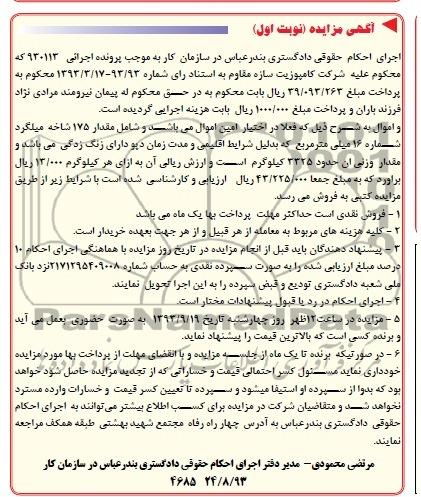 آگهی مزایده (نوبت اول)
اجرای احکام حقوقی دادگستری بندرعباس در سازمان کار به موجب پرونده اجرائی ۹۳۰۱۱۳ که
محکوم علیه شرکت کامپوزیت سازه مقاوم به استناد رای شماره ۹۳/۹۳-۱۳۹۳/۳/۱۷ محکوم به
پرداخت مبلغ ۳۹/۰۹۳/۲۶۳ ریال بابت محکوم به در حق محکوم له پیمان نیرومند مرادی نژاد
فرزند باران و پرداخت مبلغ ۱/۰۰۰/۰۰۰ ریال بابت هزینه اجرایی گردیده است.
و اموال به شرح ذیل که فعلا در اختیار امین اموال می باشد و شامل مقدار ۱۷۵ شاخه میلگرد
شماره ۱۶ میلی مترمربع که بدلیل شرایط اقلیمی و مدت زمان دپو دارای زنگ زدگی می باشد و
مقدار وزنی آن حدود ۳۳۲۵ کیلوگرم است و ارزش ریالی آن به ازای هر کیلوگرم ۱۳/۰۰۰ ریال
براورد که به مبلغ جمعا ۴۳/۲۲۵/۰۰۰ ریال ارزیابی و کارشناسی شده است با شرایط زیر از طریق
مزایده کتبی به فروش می رسد.
۱ - فروش نقدی است حداکثر مهلت پرداخت بها یک ماه می باشد
۲ - کلیه هزینه های مربوط به معامله از هر قبیل و از هر جهت بعهده خریدار است.
۳ - پیشنهاد دهندگان باید قبل از انجام مزایده در تاریخ روز مزایده با هماهنگی اجرای احکام ۱۰
درصد مبلغ ارزیابی شده را به صورت سپرده نقدی به حساب شماره ۲۱۷۱۲۹۵۴۰۹۰۰۸ نزد بانک
ملی شعبه دادگستری تودیع و قبض سپرده را به این اجرا تحویل نمایند.
۴ - اجرای احکام در رد یا قبول پیشنهادات مختار است.
۵ - مزایده در ساعت ۱۲ظهر روز چهارشنبه تاریخ ۱۳۹۳/۹/۱۹ به صورت حضوری بعمل می آید
و برنده کسی است که بالاترین قیمت را پیشنهاد نماید.
۶ - در صورتیکه برنده تا یک ماه از جلسه مزایده و با انقضای مهلت از پرداخت بها مورد مزایده
خودداری نماید مسئول کسر احتمالی قیمت و خساراتی که از تجدید مزایده حاصل شود خواهد
بود که بدوا از سپرده او استیفا میشود و سپرده تا تعیین کسر قیمت و خسارات وارده مسترد
نخواهد شد و متقاضیان شرکت در مزایده برای کسب اطلاع بیشتر می‌توانند به اجرای احکام
حقوقی دادگستری بندرعباس به آدرس چهار راه رفاه مجتمع شهید بهشتی طبقه همکف مراجعه
نمایند.
مرتضی محمودی- مدیر دفتر اجرای احکام حقوقی دادگستری بندرعباس در سازمان کار
۲۴/۸/۹۳ ۴۶۸۵
ParsNamadData